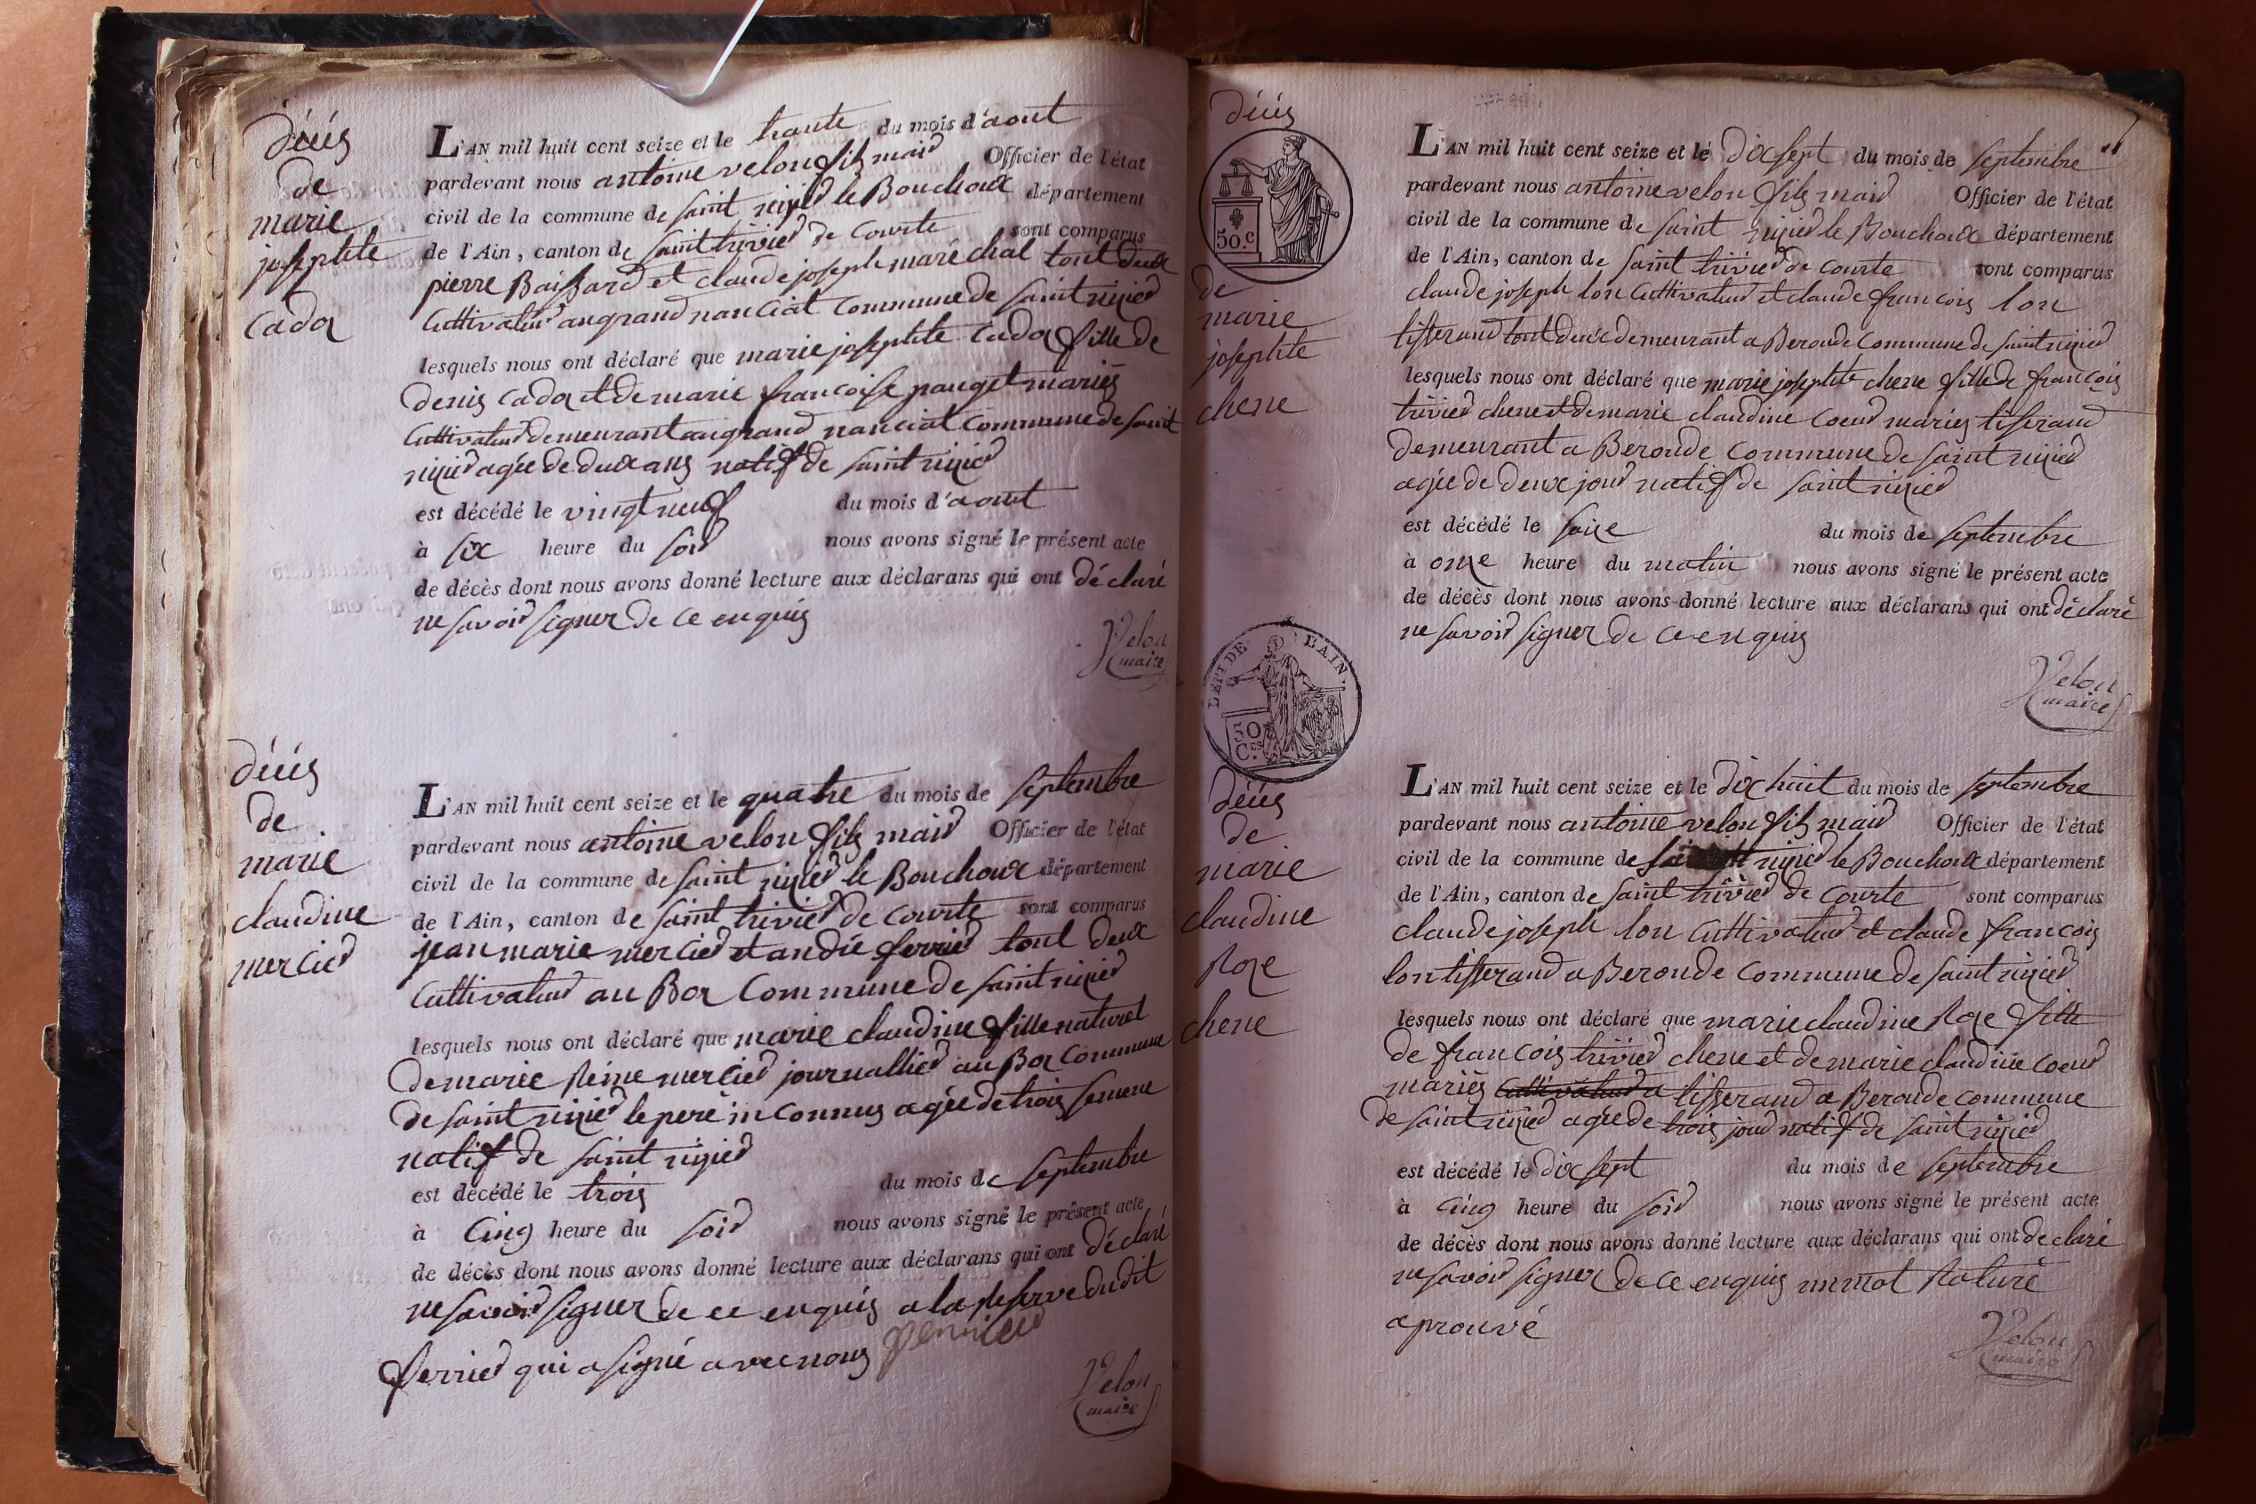 décés
de
marie
josephte
Cadoz
L'AN mil huit cent seize et le trante du mois d'aout
pardevant nous antoine velon fils mair Officier de l'état
civil de la commune de saint nizier le Bouchoux département
de l'Ain, canton de saint trivier de Courte sont comparus
pierre Baissard et claude joseph maréchal tout deux
Cultivateur au grand nanciat Commune de saint nizier
lesquels nous ont déclaré que marie josephte Cadoz fille de
denis Cadoz et de marie francoise pauget mariés
Cultivateur demeurant au grand nanciat Commune de saint
nizier agée de deux ans natif de saint nizier
est décédé le vingt neuf du mois d'aout
à six heure du soir nous avons signé le présent acte
de décès dont nous avons donné lecture aux déclarans qui ont déclaré
ne savoir signer de ce enquis
Velon
maire
décés
de
marie
claudine
mercier
L'AN mil huit cent seize et le quatre du mois de septembre
pardevant nous antoine velon fils mair Officier de l'état
civil de la commune de saint nizier le Bouchoux département
de l'Ain, canton de saint trivier de Courte sont comparus
jean marie mercier et andré ferrier tout deux
Cultivateur au Boz Commune de saint nizier
lesquels nous ont déclaré que marie claudine fille naturel
de marie Reine mercier journallier au Boz Commune
de saint nizier le peré inconnus agée de trois semene
natif de saint nizier
est décédé le trois du mois de septembre
à Cinq heure du soir nous avons signé le présent acte
de décès dont nous avons donné lecture aux déclarans qui ont déclaré
ne savoir signer de ce enquis a la Reserve dudit
ferrier qui a signé avec nous
Velon
maire
décés
50.c
de
marie
josephte
chene
L'AN mil huit cent seize et le dix sept du mois de septembre
pardevant nous antoine velon fils mair Officier de l'état
civil de la commune de saint nizier le Bouchoux département
de l'Ain, canton de saint trivier de Courte sont comparus
claude joseph lon Cultivateur et claude francois lon
tisserand tout deux demeurant a Beronde Commune de saint nizier
lesquels nous ont déclaré que marie josephte chene fille de francois
trivier chene et de marie claudine coeur mariés tisserand
demeurant a Beronde Commune de saint nizier
agée de deux jour natif de saint nizier
est décédé le saize du mois de septembre
à onze heure du matin nous avons signé le présent acte
de décès dont nous avons donné lecture aux déclarans qui ont déclaré
ne savoir signer de ce enquis
Velon
maire
DEPT DE L'AIN
50
Ces
décés
de
marie
claudine
Roze
chene
L'AN mil huit cent seize et le dix huit du mois de septembre
pardevant nous antoine velon fils mair Officier de l'état
civil de la commune de saint nizier le Bouchoux département
de l'Ain, canton de saint trivier de Courte sont comparus
claude joseph lon Cultivateur et claude francois
lon tisserand a Beronde Commune de saint nizier
lesquels nous ont déclaré que marie claudine Roze fille
de francois trivier chene et de marie claudine coeur
mariés Cultivateur a tisserand a Beronde commune
de saint nizier agée de trois jour natif de saint nizier
est décédé le dix sept du mois de septembre
à Cinq heure du soir nous avons signé le présent acte
de décès dont nous avons donné lecture aux déclarans qui ont déclaré
ne savoir signer de ce enquis un mot Raturé
aprouvé
Velon
maire